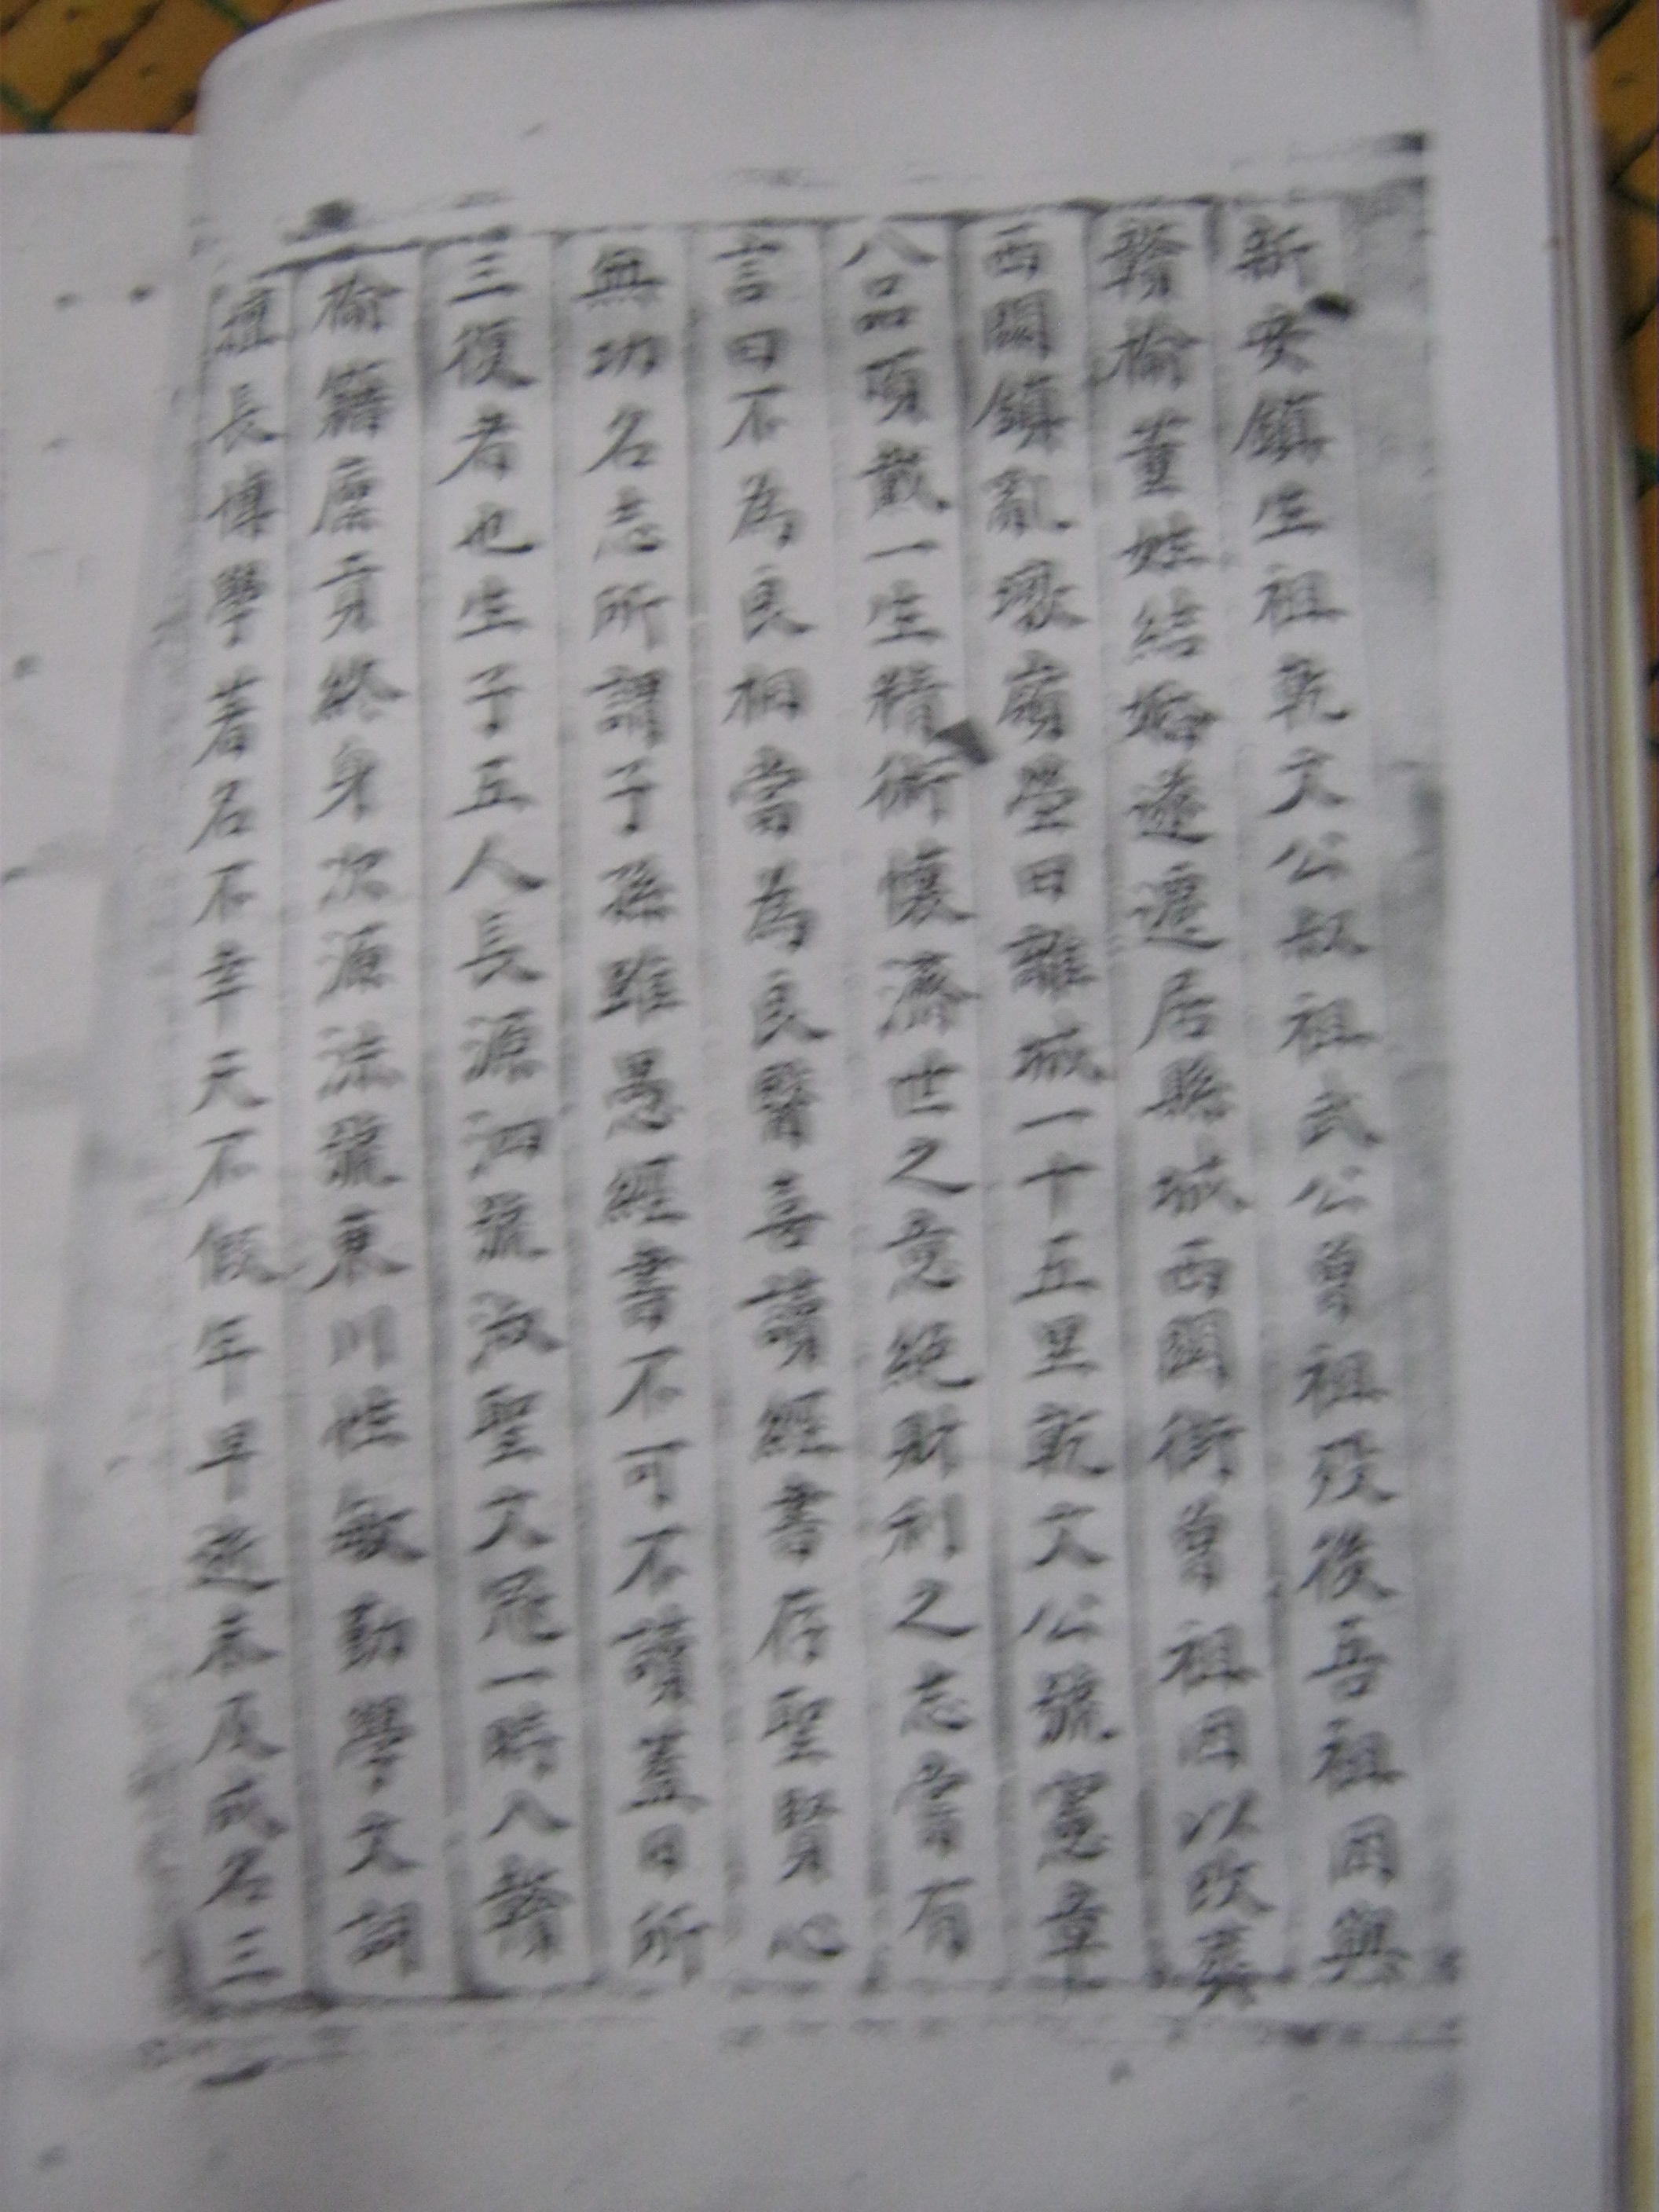 新安鎮生祖乾文公叔祖武公曾祖歿後吾祖因與
贛榆董姓結婚遂遷居縣城西關街曾祖因以改葬
西關鎮亂墩嶺塋曰離城一十五里乾文公號憲章
八品頂戴一生精術懷濟世之意絕財利之志嘗有
言曰不為良相當為良醫喜讀經書存聖賢心
無功名志所謂子孫雖愚經書不可不讀蓋日所
三復者也生子五人長源泗號淑聖文冠一時入贛
榆籍廩貢終身次源流號東川性敏勤學文詞
擅長博學著名不幸天不假年早逝泰及成名三